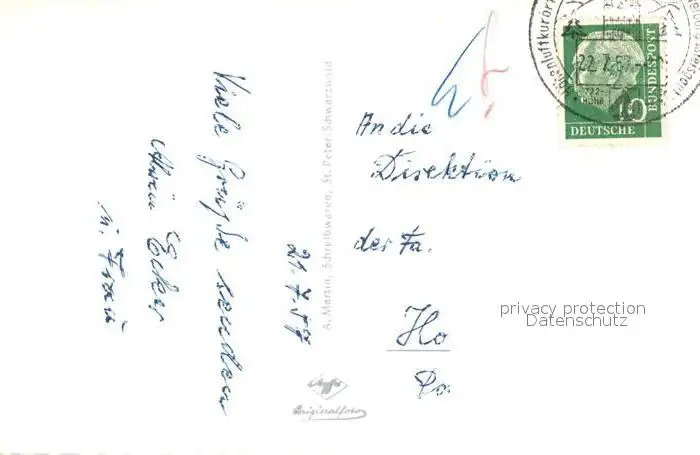 Viele Grüße senden
Alwin Ecker
u. Frau
21.7.57
A. Martin, Schreibwaren, St. Peter-Schwarzwald
Agfa
Originalfoto
An die
Direktion
der Fa.
Ho
privacy protection
Datenschutz
Höhenluftkurort
22.7.57
722
HÖHE
10
DEUTSCHE
BUNDESPOST